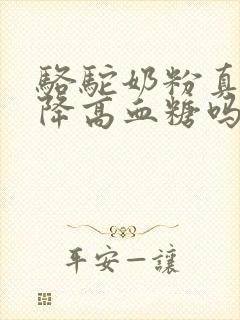 骆驼奶粉真
降高血糖吗
平安一讓